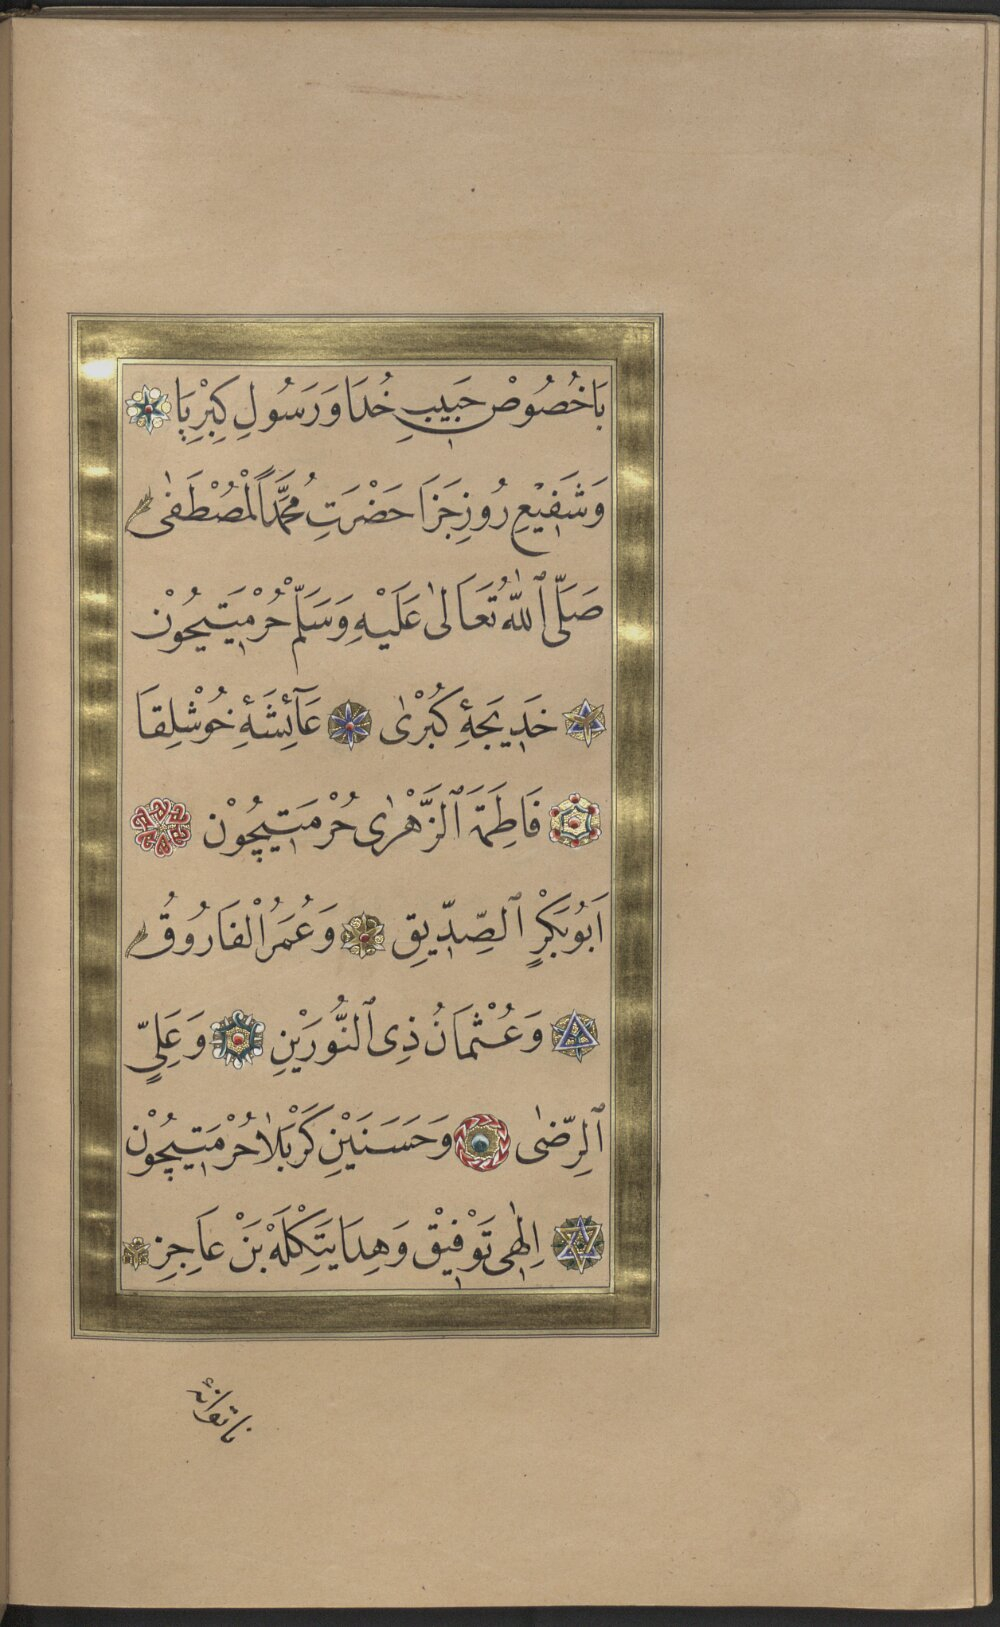 بَاخُصُوصْ حَبِيبِ خُدَا وَرَسُولِ كِبْرِيَا
وَشَفِيْعِ رُوزِ جَزَا حَضْرَتِ مُحَمَّدًا لْمُصْطَفٰى
صَلَّى ٱللّٰهُ تَعَالٰى عَلَيْهِ وَسَلَّمْ حُرْمَتِيچُوْن
خَدِيجَهِٔ كُبْرٰى عَآئِشَهِٔ خُوشْلِقَا
فَاطِمَةَ ٱلزَّهْرٰى حُرْمَتِيچُوْن
اَبُوبَكْرٍ ٱلصِّدِّيقِ وَعُمَرُ الْفَارُوقُ
وَعُثْمَانُ ذِى ٱلنُّورَيْنِ وَعَلِيٍّ
ٱلرِّضٰى وَحَسَنَيْنِ كَرْبَلَا حُرْمَتِيچُوْن
اِلٰهِى تَوْفِيْق وَهِدَايَتِكْلَهْ بَنْ عَاجِزِ
ناتوانه